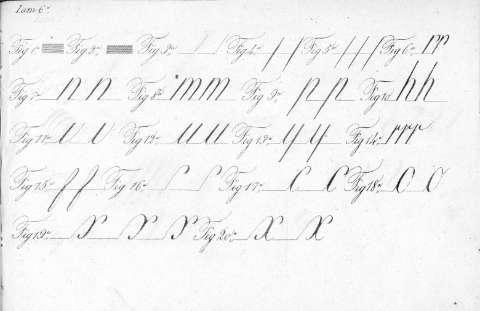 Lam 6ª
Fig 1ª Fig 2ª Fig 3ª Fig 4ª Fig 5ª Fig 6ª rr
Fig 7ª n n Fig 8ª m m Fig 9ª p p Fig 10 h h
Fig 11ª v v Fig 12ª u u Fig 13ª y y Fig 14ª rrr
Fig 15ª Fig 16ª Fig 17ª c c Fig 18ª o o
Fig 19ª Fig 20ª x x